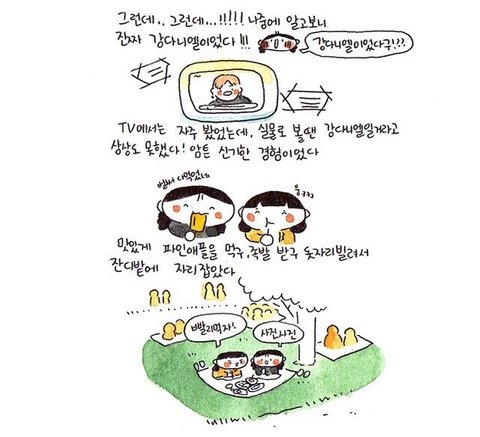 그런데.. 그런데...!!!!! 나중에 알고보니
진짜 강다니엘이었다!!!
강다니엘이었다구!??
TV에서는 자주 봤었는데, 실물로 볼땐 강다니엘일거라고
상상도 못했다! 암튼 신기한 경험이었다
벌써 다먹었네
웅ㅋㅋ
맛있게 파인애플을 먹구, 족발 받구 돗자리빌려서
잔디밭에 자리잡았다
빨리먹자!
사진사진